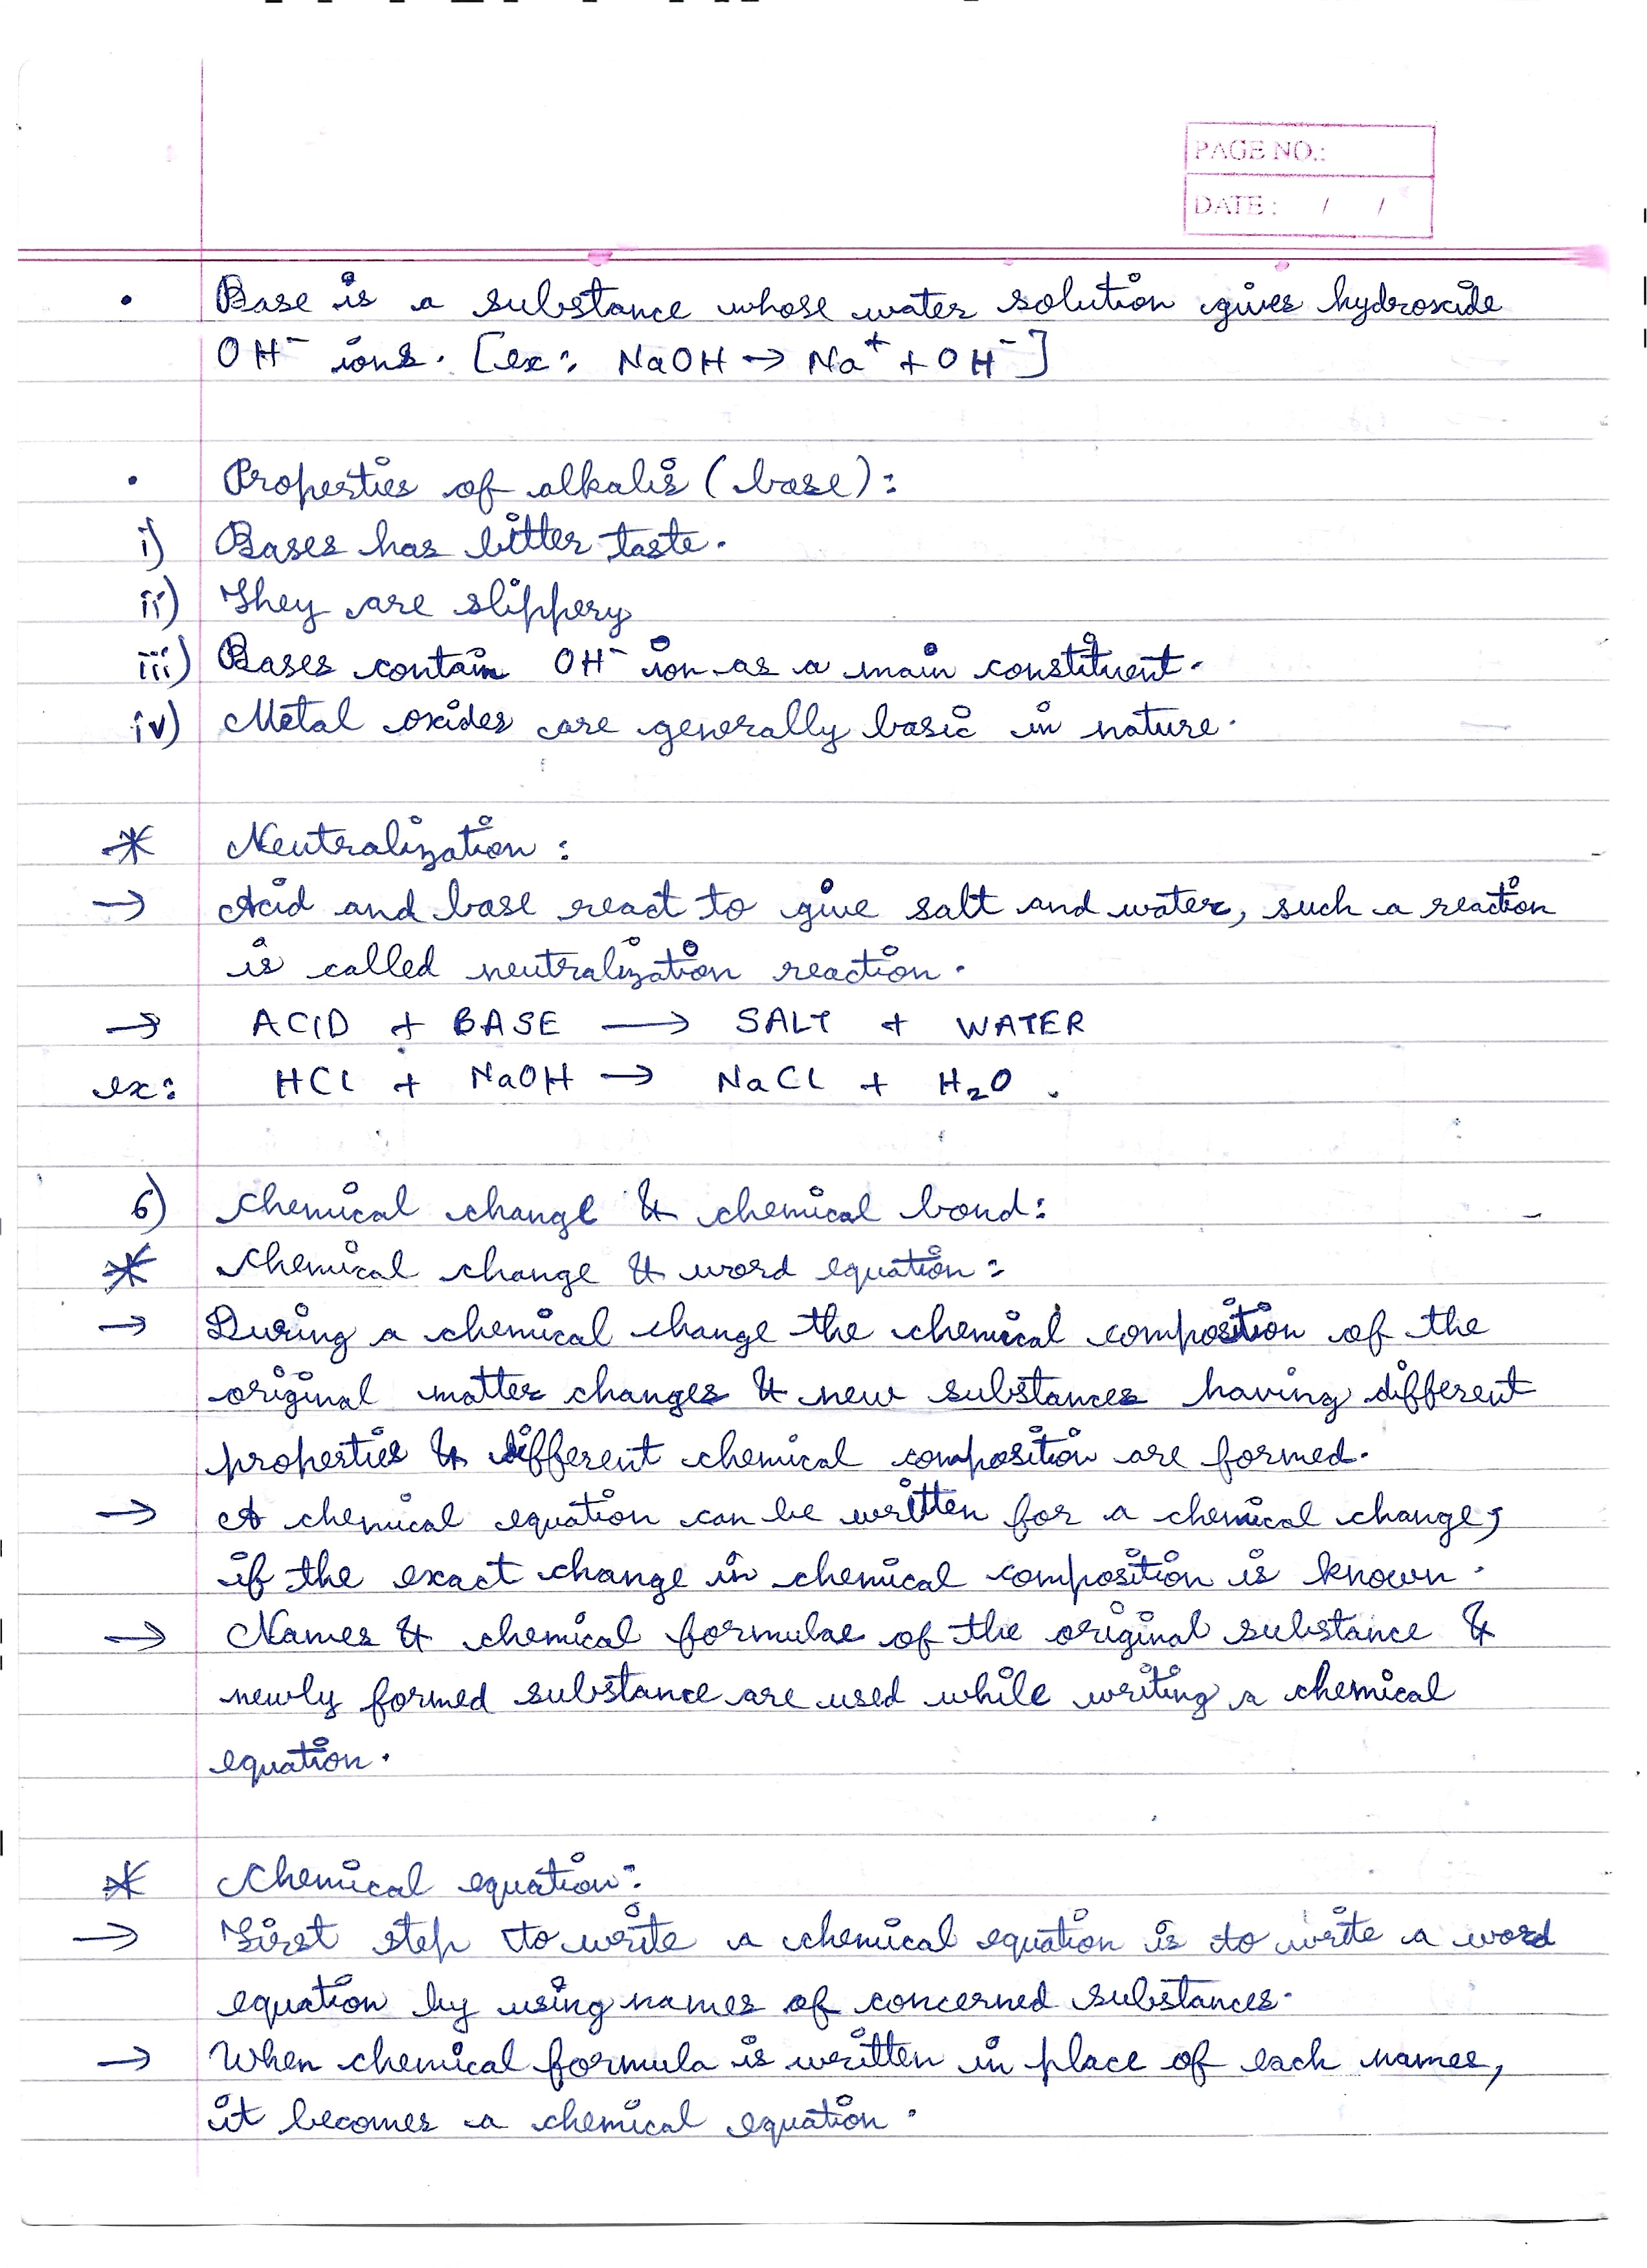 PAGE NO.:
DATE: / /
• Base is a substance whose water solution gives hydroxide
OH⁻ ions. [ex: NaOH → Na⁺ + OH⁻]
• Properties of alkalis (base):
i) Bases has bitter taste.
ii) They are slippery
iii) Bases contain OH⁻ ion as a main constituent.
iv) Metal oxides are generally basic in nature.
* Neutralization:
→ Acid and base react to give salt and water, such a reaction
is called neutralization reaction.
→ ACID + BASE → SALT + WATER
ex: HCl + NaOH → NaCl + H₂O.
6) Chemical change & chemical bond:
* Chemical change & word equation:
→ During a chemical change the chemical composition of the
original matter changes & new substances having different
properties & different chemical composition are formed.
→ A chemical equation can be written for a chemical change,
if the exact change in chemical composition is known.
→ Names & chemical formulae of the original substance &
newly formed substance are used while writing a chemical
equation.
* Chemical equation:
→ First step to write a chemical equation is to write a word
equation by using names of concerned substances.
→ When chemical formula is written in place of each names,
it becomes a chemical equation.